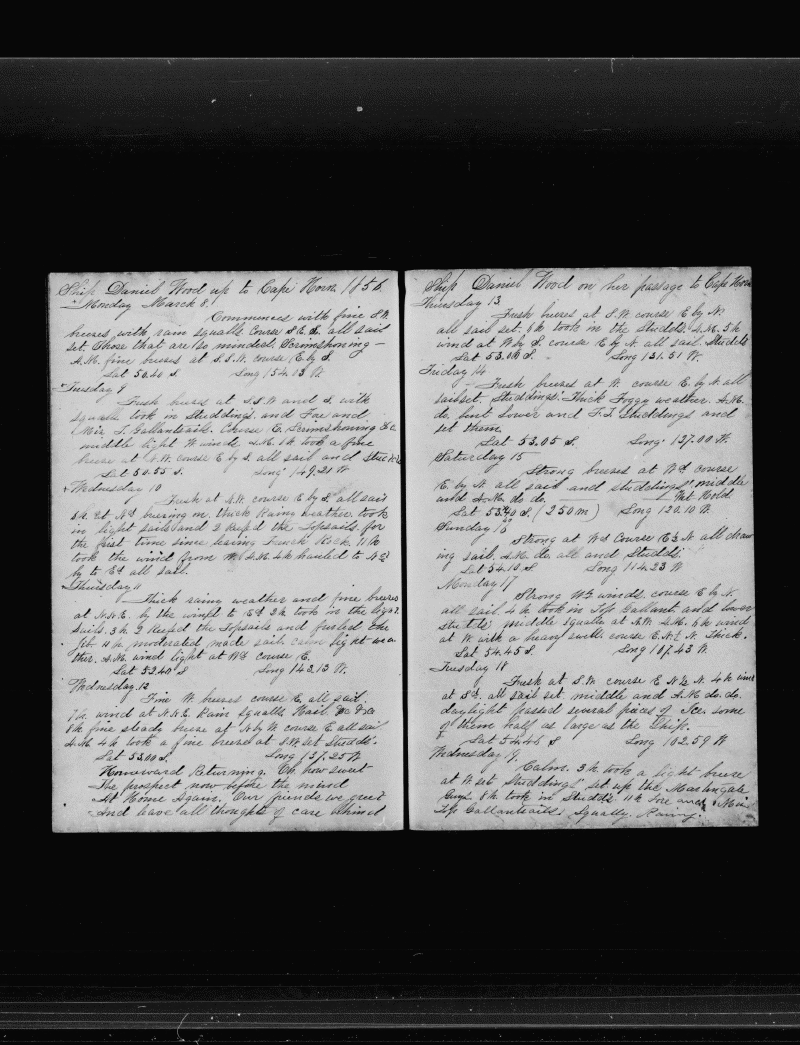 Ship Daniel Wood up to Cape Horn 1856
Monday March 8.
Commences with fine S.W.
breezes with rain squalls Course S.E. all sail
set. Those that are so minded, Scrimshoning —
A.M. fine breezes at S.S.W. course E. by S.
Lat 50.40 S Long 154.03 W.
Tuesday 9
Fresh breezes at S.S.W and S. with
squalls took in Studdings. and Fore and
Miz T. Gallantsails. Course E. Scrimshoning &c.
middle light W wind. A.M. 1 h took a fine
breeze at N.W. course E by S. all sail and
Lat 50.55 S. Long 149.21 W
Wednesday 10
Fresh at N.W. course E by S. all sail
thick Rainy weather took
in light sails and 2 Reefd the Topsails for
the first time since leaving French Rock. 11 h
took the wind from A.M. 4 h hauled to
by to Ed all sail.
Thursday 11
Thick rainy weather and fine breezes
at N.N.E. by the wind to Ed 2 h took in the light
Sails. 3 h 2 Reefd the Topsails and furled the
Jib 11 h moderated made sail. calm light wea
ther. A.M. wind light at Wd course E.
Lat 52.40 S Long 143.13 W.
Wednesday 12
Fine W. breezes course E. all sail.
7 h. wind at N.N.E. Rain Squalls. Hail. &c &c
8 h fine steady breeze at N by W. course E all sail
A.M. 4 h took a fine breeze at S.W. set Studds.
Lat 53.00 S. Long 137.25 W
Homeward Returning. Oh, how sweet
The prospect now before the mind
At Home Again. Our friends we greet
And leave all thoughts of care behind
Ship Daniel Wood on her passage to Cape Horn
Thursday 13
Fresh breezes at S.W. course E by N.
all sail set. 6 h took in the Studds. A.M. 5 h
wind at W by S. course E by N. all sail. Studds
Lat 53.06 S. Long 131.51 W.
Friday 14
Fresh breezes at W. course E. by N. all
sail set. Studdings. Thick Foggy weather. A.M.
do. bent Lower and F.T. Studdings and
set them.
Lat 53.05 S. Long 127.00 W.
Saturday 15
Strong breezes at Wd course
E by N all sail and studdings, middle
and A.M. do do.
Lat 53.40 S. (250 m) Long 120.10 W.
Sunday 16
Strong at Wd Course E½N. all draw
ing sail. A.M. do. all and Studds.
Lat 54.10 S. Long 114.23 W
Monday 17
Strong Wd winds. course E by N.
all sail 4 h took in Top Gallant and lower
studds. middle squalls at N.W. A.M. 5 h wind
at W. with a heavy swell course E.N½N. Thick.
Lat 54.45 S. Long 107.43 W.
Tuesday 18
Fresh at S.W. course E N½N. 4 h wind
at Sd. all sail set, middle and A.M. do. do.
daylight passed several pieces of Ice. some
of them half as large as the Ship.
Lat 54.46 S Long 102.59 W
Wednesday 19.
Calm. 3 h. took a light breeze
at W set Studdings set up the Martingale
Guys. 8 h took in Studds 11 h Fore and Main
Top Gallantsails. Squally. Rainy.